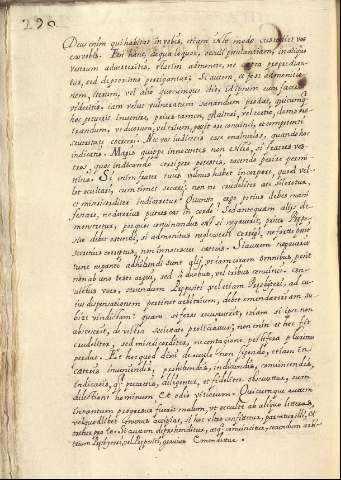 290
Deus enim qui habitat in vobis, etiam isto modo custodiet vos
ex vobis. Et si hanc, de qua loquor, oculi petulantiam, in aliquo
vestrum adverteritis, statim admonete, ne cœpta progrediantur,
sed de proximo corrigantur. Si autem, et post admonitionem,
iterum, vel alio quocumque die, id ipsum eum facere
videritis, iam velut vulneratum sanandum prodat, quicumque
hoc potuerit invenire, prius tamen, et alteri, vel tertio, demonstratum,
ut duorum, vel trium, possit ore convinci, et competenti
severitate coerceri. Nec vos iudicetis esse malevolos, quando hoc
indicatis. Magis quippe innocentes non estis, si fratres vestros,
quos indicando corrigere potestis, tacendo perire permittitis.
Si enim frater tuus vulnus habet in corpore, quod velit
occultari, cum timet secari; non ne crudeliter abs te sileretur,
et misericorditer indicaretur? Quanto ergo potius debes manifestare,
ne deterius putrescat in corde? Sed antequam aliis demonstretur,
per quos convincendus est, si negaverit, prius Præposito
debet ostendi, si admonitus neglexerit corrigi, ne forte possit
secretius correptus, non innotescere cæteris. Si autem negaverit,
tunc neganti adhibendi sunt alii, ut iam coram omnibus, possit
non ab uno teste argui, sed à duobus, vel tribus convinci. Convictus
vero, secundum Præpositi, vel etiam Presbyteri, ad cuius
dispensationem pertinet arbitrium, debet emendatoriam subire
vindictam: quam si ferre recusaverit, etiam si ipse non
abscesserit, de vestra societate proiiciatur; non enim et hoc fit
crudeliter, sed misericorditer, ne contagione pestifera plurimos
perdat. Et hoc quod dixi de oculo non figendo, etiam in
cæteris inveniendis, prohibendis, indicandis, convincendis,
vindicandisque peccatis, diligenter, et fideliter observetur, cum
dilectione hominum et odio vitiorum. Quicumque autem
in tantum progressus fuerit malum, ut occulte ab aliquo litteras,
vel quælibet munera accipiat, si hoc ultro confitetur, parcatur illi, et
oretur pro eo. Si autem deprehenditur, atque convincitur, secundum arbitrium
Presbyteri, vel Præpositi, gravius emendetur.